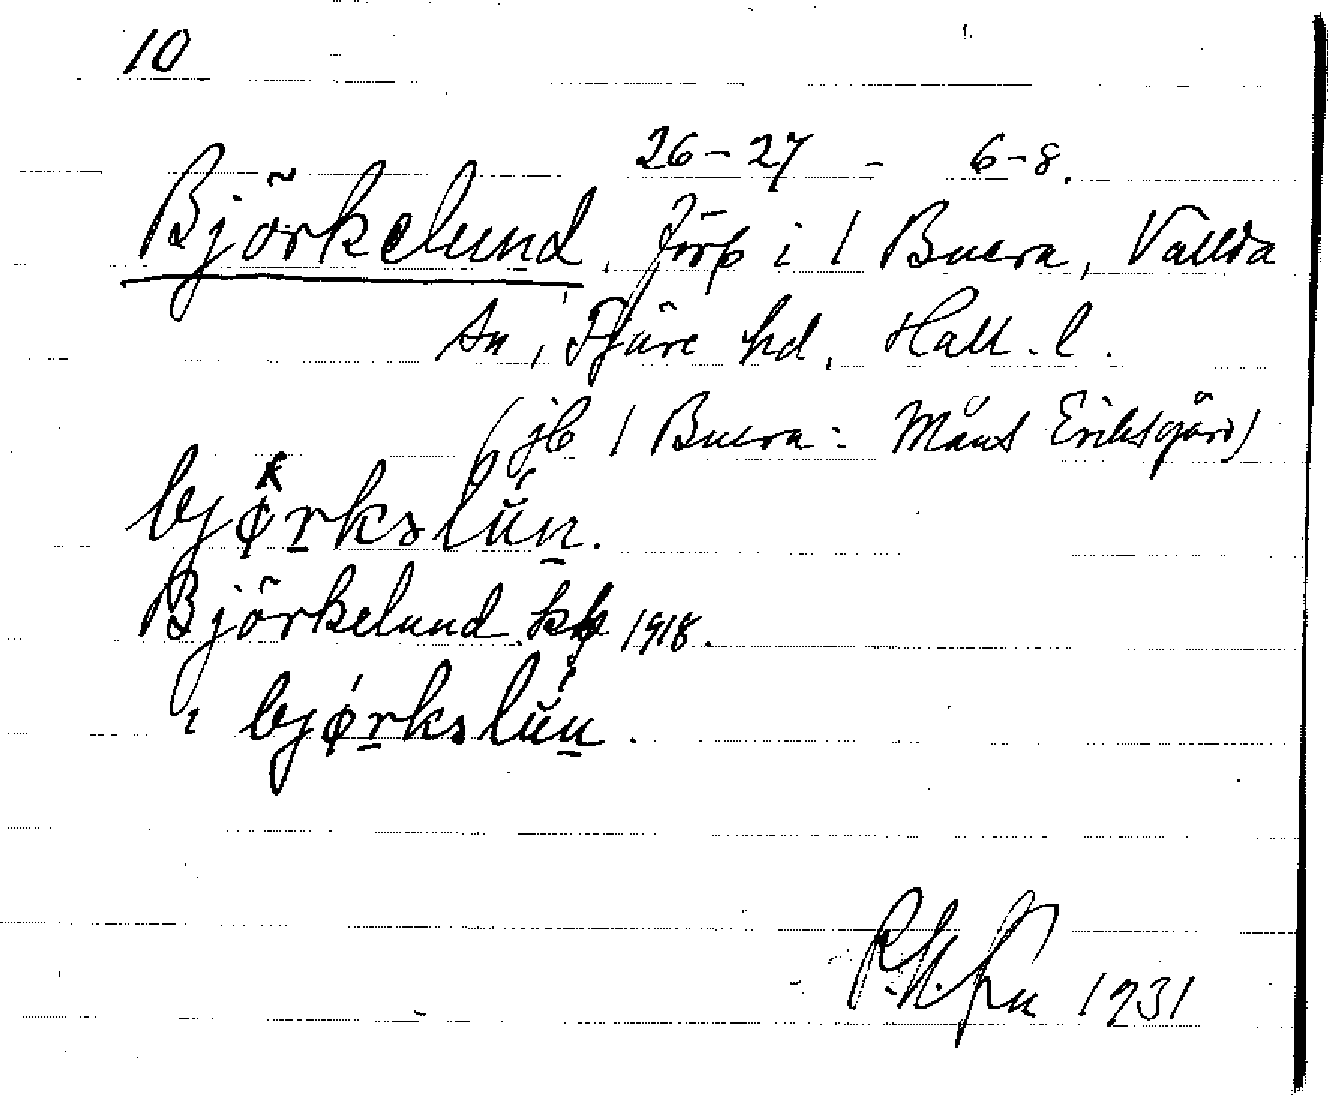 10
26-27 - 6-8.
Björkelund, förp i 1 Buera, Vallda
sn, Fjäre hd, Hall. l.
(jb 1 Buera: Måns Eriksgård)
bjørkslun.
Björkelund 1918.
bjørkslun.
1931